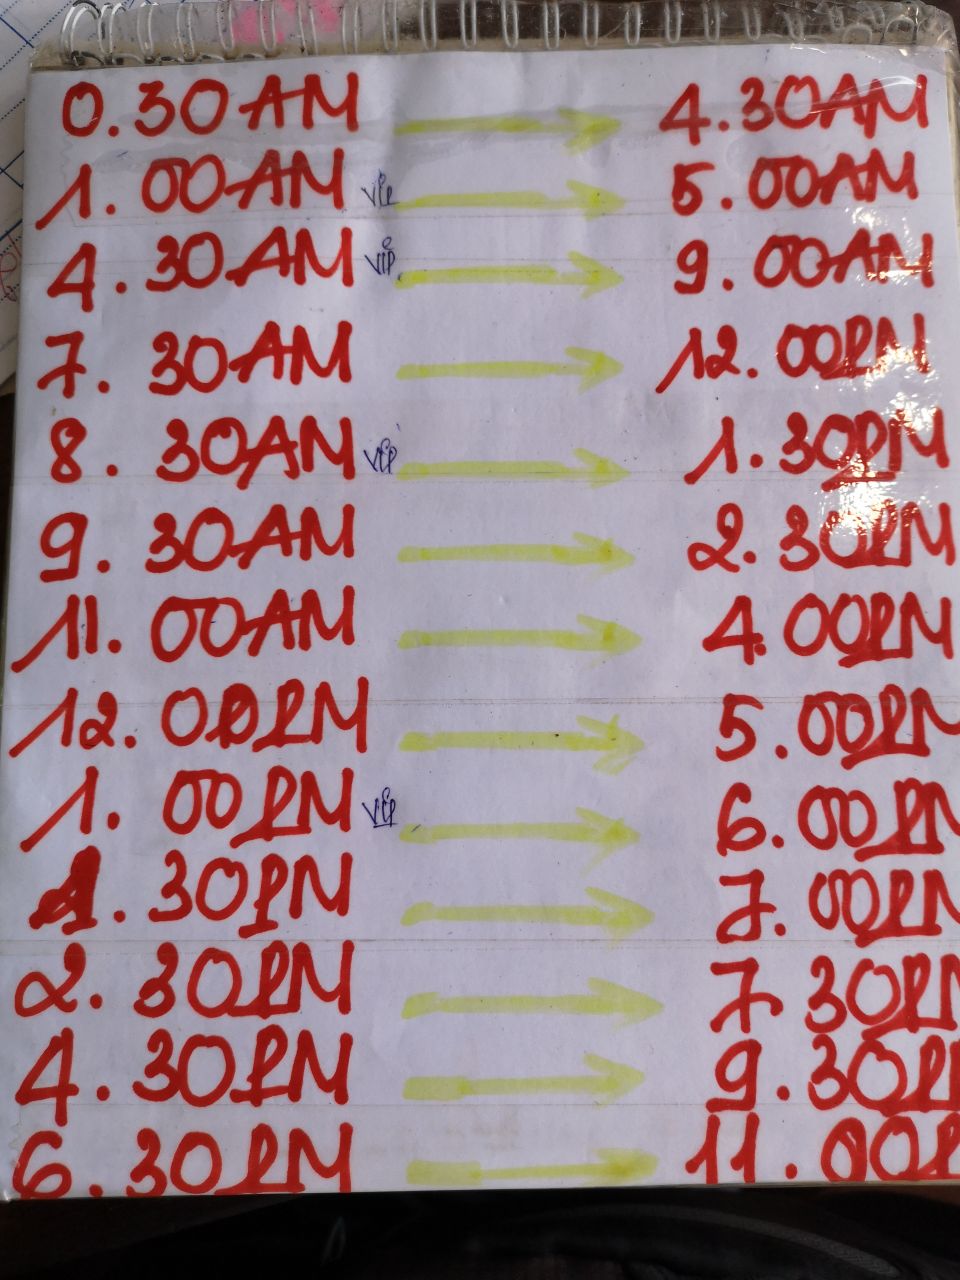 0.30AM 4.30AM
1.00AM VIP 5.00AM
4.30AM VIP 9.00AM
7.30AM 12.00PM
8.30AM VIP 1.30PM
9.30AM 2.30PM
11.00AM 4.00PM
12.00PM 5.00PM
1.00PM VIP 6.00PM
1.30PM 7.00PM
2.30PM 7 30PM
4.30PM 9.30P
6.30PM 11.00P